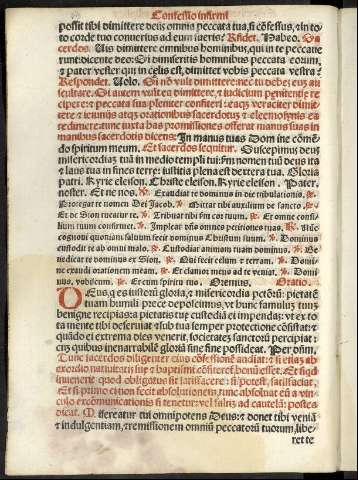 Confessio infirmi
possit tibi dimittere deus omnia peccata tua, si cōfessus, ⁊ in to
to corde tuo conuersus ad eum fueris? Rñdet. Habeo. Sa
cerdos. Uis dimittere omnibus hominibus, qui in te peccaue
runt: dicente deo: Si dimiseritis hominibus peccata eorum,
⁊ pater vester qui in celis est, dimittet vobis peccata vestra?
Respondet. Uolo. Si nō vult dimittere: nec tu debes eum ab
soluere. Si autem vult ea dimittere, ⁊ iudicium penitentie re
cipere: ⁊ peccata sua pleniter confiteri: eaqȝ veraciter dimitte
re ⁊ ieiunijs atqȝ orationibus sacerdotus ⁊ eleemosynis ea
redimere: tunc iuxta has promissiones offerat manus suas in
manibus sacerdotis dicens: In manus tuas Dom ine cōmē
do spiritum meum. Et sacerdos sequitur. Suscepimus deus
misericordiaȝ tuā in medio templi tui: scđm nomen tuū deus ita
⁊ laus tua in fines terre: iustitia plena est dextera tua. Gloria
patri. Kyrie eleison. Christe eleison. Kyrie eleison. Pater
noster. Et ne nos. ℣. Exaudiat te dominus in die tribulationis. ℟.
Protegat te nomen Dei Jacob. ℣. Mittat tibi auxilium de sancto. ℟.
Et de Sion tueatur te. ℣. Tribuat tibi scđm cor tuum. ℟. Et omne consi-
lium tuum confirmet. ℣. Impleat dñs omnes petitiones tuas. ℟. Nūc
cognoui quoniam saluum fecit dominus Christum suum. ℣. Dominus
custodit te ab omni malo. ℟. Custodiat animam tuam dominus. ℣. Be
nedicat te dominus ex Sion. ℟. Qui fecit celum ⁊ terram. ℣. Domi-
ne exaudi orationem meam. ℟. Et clamor meus ad te veniat. ℣. Domi
nus vobiscum. ℟. Et cum spiritu tuo. Oremus. Oratio.
DEus, q̄ es iustorū gloria, ⁊ misericordia petōrū: pietatē
tuam humili prece deposcimus: vt hunc famulūȝ tuūȝ
benigne recipias: ⁊ pietatis tue custodiā ei impendas: vt ex to
ta mente tibi deseruiat ⁊ sub tua semper protectione cōsistat: ⁊
quādo ei extrema dies venerit, societateȝ sanctorū percipiat:
cūȝ quibus inenarrabilē gloriā sine fine possideat. Per dñm.
Tunc sacerdos diligenter eius cōfessionē audiat: ⁊ si etiaȝ ab
exordio natiuitatis sue ⁊ baptismi cōfiteret, bonū esset. Et si qđ
inuenerit quod obligatus sit satisfacere: si potest, satisfaciat.
Et si primo etiaȝ fecit absolutionem, tunc absoluat eū a vin-
culo excōmunicationis si tenetur: vel saltuȝ ad cautelā: postea
dicat. Misereatur tui omnipotens Deus: ⁊ donet tibi veniā
⁊ indulgentiam, ⁊ remissionem omniū peccatorū tuorum, libe-
ret te